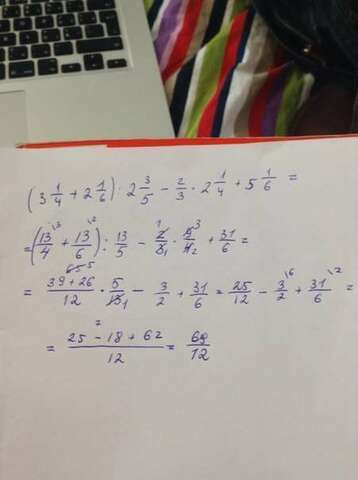 (3 1/4 + 2 1/6) · 2 3/5 − 2/3 · 2 1/4 + 5 1/6 =
= (13/4 \3 + 13/6 \2) : 13/5 − 2/3 · 9/4 + 31/6 =
= 39+26/12 · 5/13 − 3/2 + 31/6 = 25/12 − 3/2 \6 + 31/6 \2 =
= 25 − 18 + 62/12 = 69/12